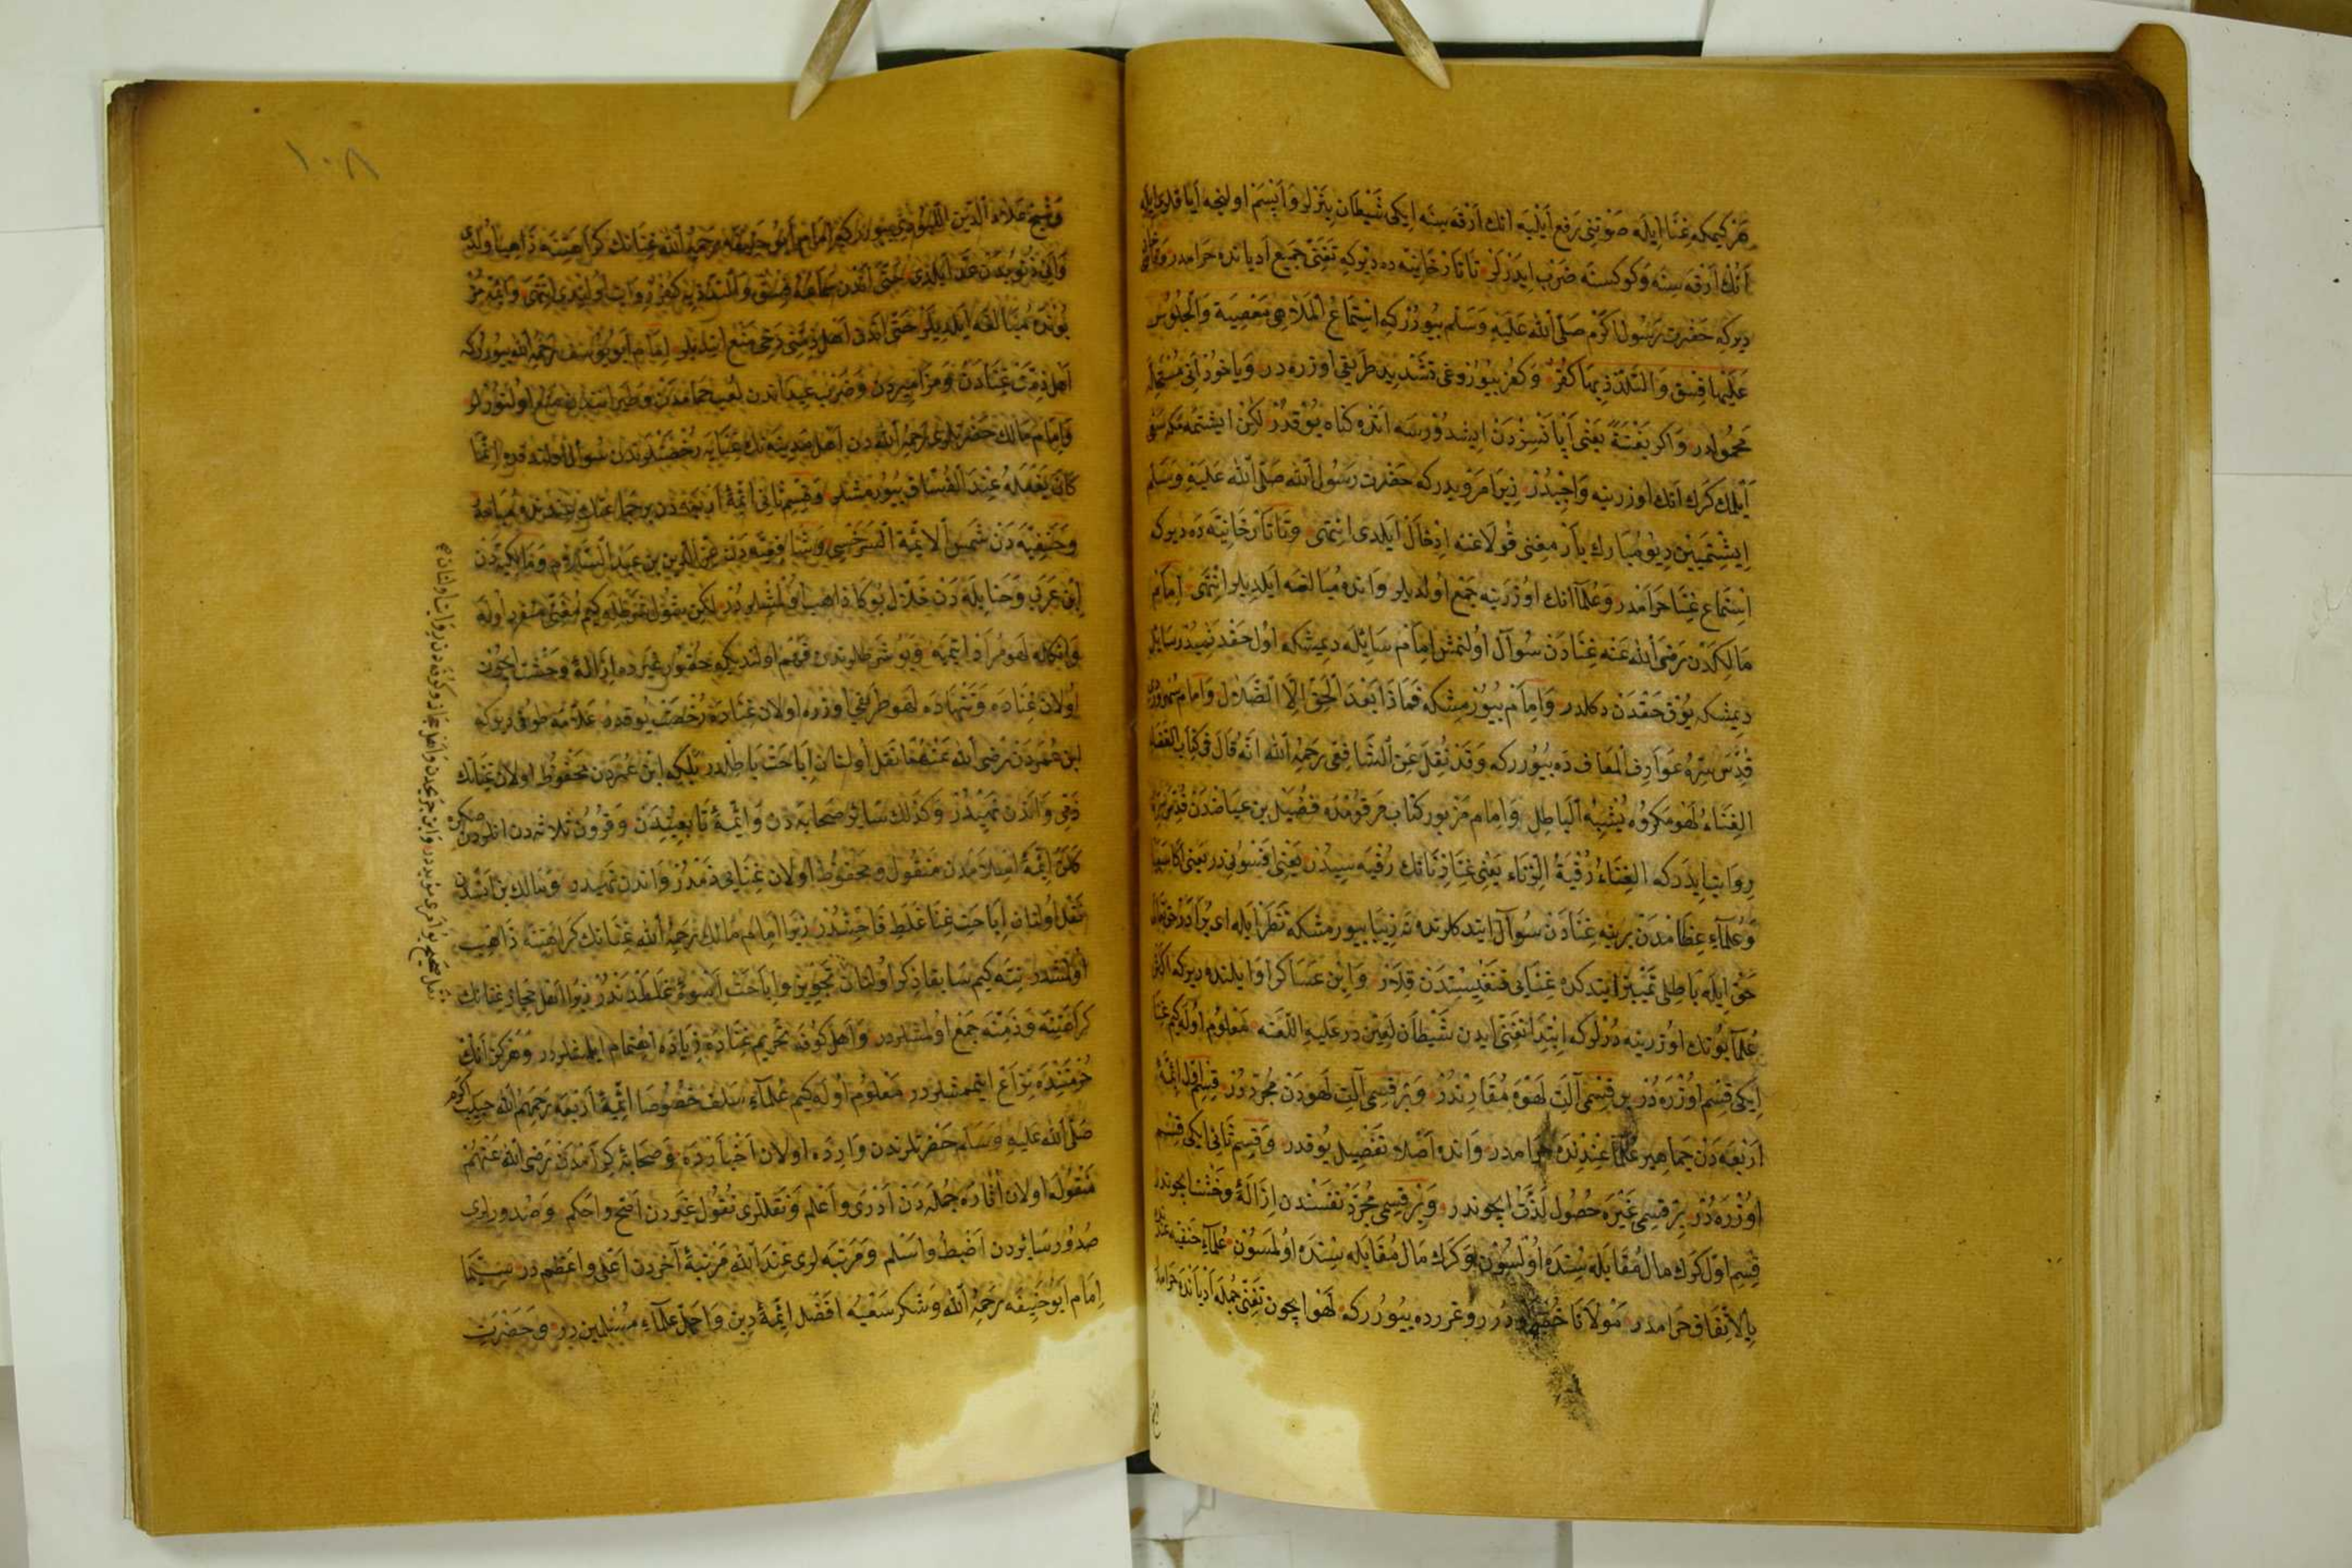 هر كيمكه غنا ايله صوتنى رفع ايليه انك ارقه سنه ايكى شيطان بنرلر و ابسم اولنجه اياقلرى ايله
انك ارقه سنه و كوكسنه ضرب ايدرلر تاتارخانيه ده ديركه تغنى جميع اديانده حرامدر
ديركه حضرت رسول اكرم صلى الله عليه وسلم بيوررکه استماع الملاهى معصية والجلوس
عليها فسق والتلذذ بها كفر و كفر بيوردوغى تشديد طريقى اوزره در وياخود انى مستحله
محمولدر واكر بغتة يعنى اپانسزدن ايشدورسه انده كناه يوقدر لكن ايشتمه مكه سعى
ايلمك كرك انك اوزرينه واجبدر زيرا مرويدركه حضرت رسول الله صلى الله عليه وسلم
ايشتميين ديو مبارك پارمغنى قولاغنه ادخال ايلدى انتهى وتاتارخانيه ده ديركه
استماع غنا حرامدر وعلما انك اوزرينه جمع اولديلر وانده مبالغه ايلديلر انتهى امام
مالكدن رضى الله عنه غنادن سؤال اولنمش امام سائله ديمشكه اول حقدنميدر سائل
ديمشكه يوق حقدن دكلدر وامام بيورمشكه فماذا بعد الحق الا الضلال وامام سهروردى
قدس سره عوارف المعارف ده بيوررکه وقد نقل عن الشافعى رحمه الله انه قال فى كتاب القضاء
الغناء لهو مكروه يشبه الباطل وامام مزبور كتاب مرقومده فضيل بن عياضدن قدس سره
روايت ايدركه الغناء رقية الزناء يعنى غنا زنانك رقيه سيدر يعنى افسونيدر
وعلماء عظامدن برينه غنادن سؤال ايتدكلرنده بيورمشكه نظر ايله اى برادر
حق ايله باطلى تمييز ايتدكده غنايى قنغيسندن قلار وابن عساكر روايلنده ديركه اكثر
علما بونك اوزرينه درلركه ابتدا تغنى ايدن شيطان لعين در عليه اللعنه معلوم اوله كيم غنا
ايكى قسم اوزره در بر قسمى آلت لهوه مقارندر وبر قسمى آلت لهودن مجرددر قسم اول ائمۀ
اربعه دن جماهير علما عندنده حرامدر وانده اصلا تفصيل يوقدر وقسم ثانى ايكى قسم
اوزره در بر قسمى غيره حصول لذت ايچوندر وبر قسمى مجرد نفسندن ازالۀ وحشت ايچوندر
قسم اول كرك مال مقابله سنده اولسون وكرك مال مقابله سنده اولمسون علماء حنفيه عندنده
بالاتفاق حرامدر مولانا خسرو درر وغررده بيوررکه لهو ايچون تغنى جمله اديانده حرامدر
وشيخ صلاح الدين بيوررکيم امام ابو حنيفه رحمه الله غنانك كراهتنه ذاهب اولدى
وانى ذنوبدن عد ايلدى حتى اندن سماعه فسق والتلذذ به كفر روايت اولندى انتهى وائمه مز
بونده مبالغه ايلديلر حتى اندن اهل ذمتى دخى منع ايتديلر امام ابو يوسف رحمه الله بيوررکه
اهل ذمت غنادن ومزاميردن وضرب عيداندن لعب حمامدن منع اولنورلر
وامام مالك حضرتلرى رحمه الله دن اهل مدينه نك غنايه رخصتلرندن سؤال اولندقده انما
كان يفعله عند الفساق بيورمشلر وقسم ثانى ائمۀ اربعه دن بر جماعتك عندنده مباحدر
وحنفيه دن شمس الائمة السرخسى وشافعيه دن عز الدين بن عبد السلام ومالكيه دن
ابن عربى وحنابله دن خلال بوكا ذاهب اولمشلردر لكن بو قول شرطله كيم مغنى منفرد اوله
وانكله لهو مراد ايتميه وبو شرطلردن فهم اولنديكه حضور غيرده ازالۀ وحشت ايچون
اولان غناده وتنهاده لهو طريقى اوزره اولان غناده رخصت يوقدر علامه طوفى ديركه
ابن عمردن رضى الله عنهما نقل اولنان اباحت باطلدر بلكه ابن عمردن محفوظ اولان غنانك
ذمى واندن نهيدر وكذلك سائر صحابه دن وائمۀ تابعيندن وقرون ثلاثه دن انلردن صكره
كلن ائمۀ اسلامدن منقول ومحفوظ اولان غنايى ذمدر واندن نهيدر ومالك بن انسدن
نقل اولنان اباحت غنا غلط فاحشدر زيرا امام مالك رحمه الله غنانك كراهتنه ذاهب
اولمشدر نته كيم سابقا ذكر اولنان تجويز واباحت غلطدندر زيرا اهل حجاز غنانك
كراهتنه وذمنه جمع اولمشلردر واهل كوفه تحريم غناده زياده اهتمام ايلمشلردر وهركز انك
حرمتنده نزاع ايتمشلردر معلوم اوله كيم علماء سلف خصوصا ائمۀ اربعه رحمهم الله حبيب اكرم
صلى الله عليه وسلم حضرتلرندن وارده اولان اخبارده وصحابۀ كرامدن رضى الله عنهم
منقوله اولان آثارده جمله دن ادرى واعلم ونقللرى نقول غيردن اصح واحكم وصدورلرى
صدور سائردن اضبط واسلم ومرتبه لرى عند الله مرتبۀ آخردن اعلى واعظم در سيما
امام ابو حنيفه رحمه الله وشكر سعيه افضل ائمۀ دين واجل علماء مسلمين در وحضرت
١٠٨